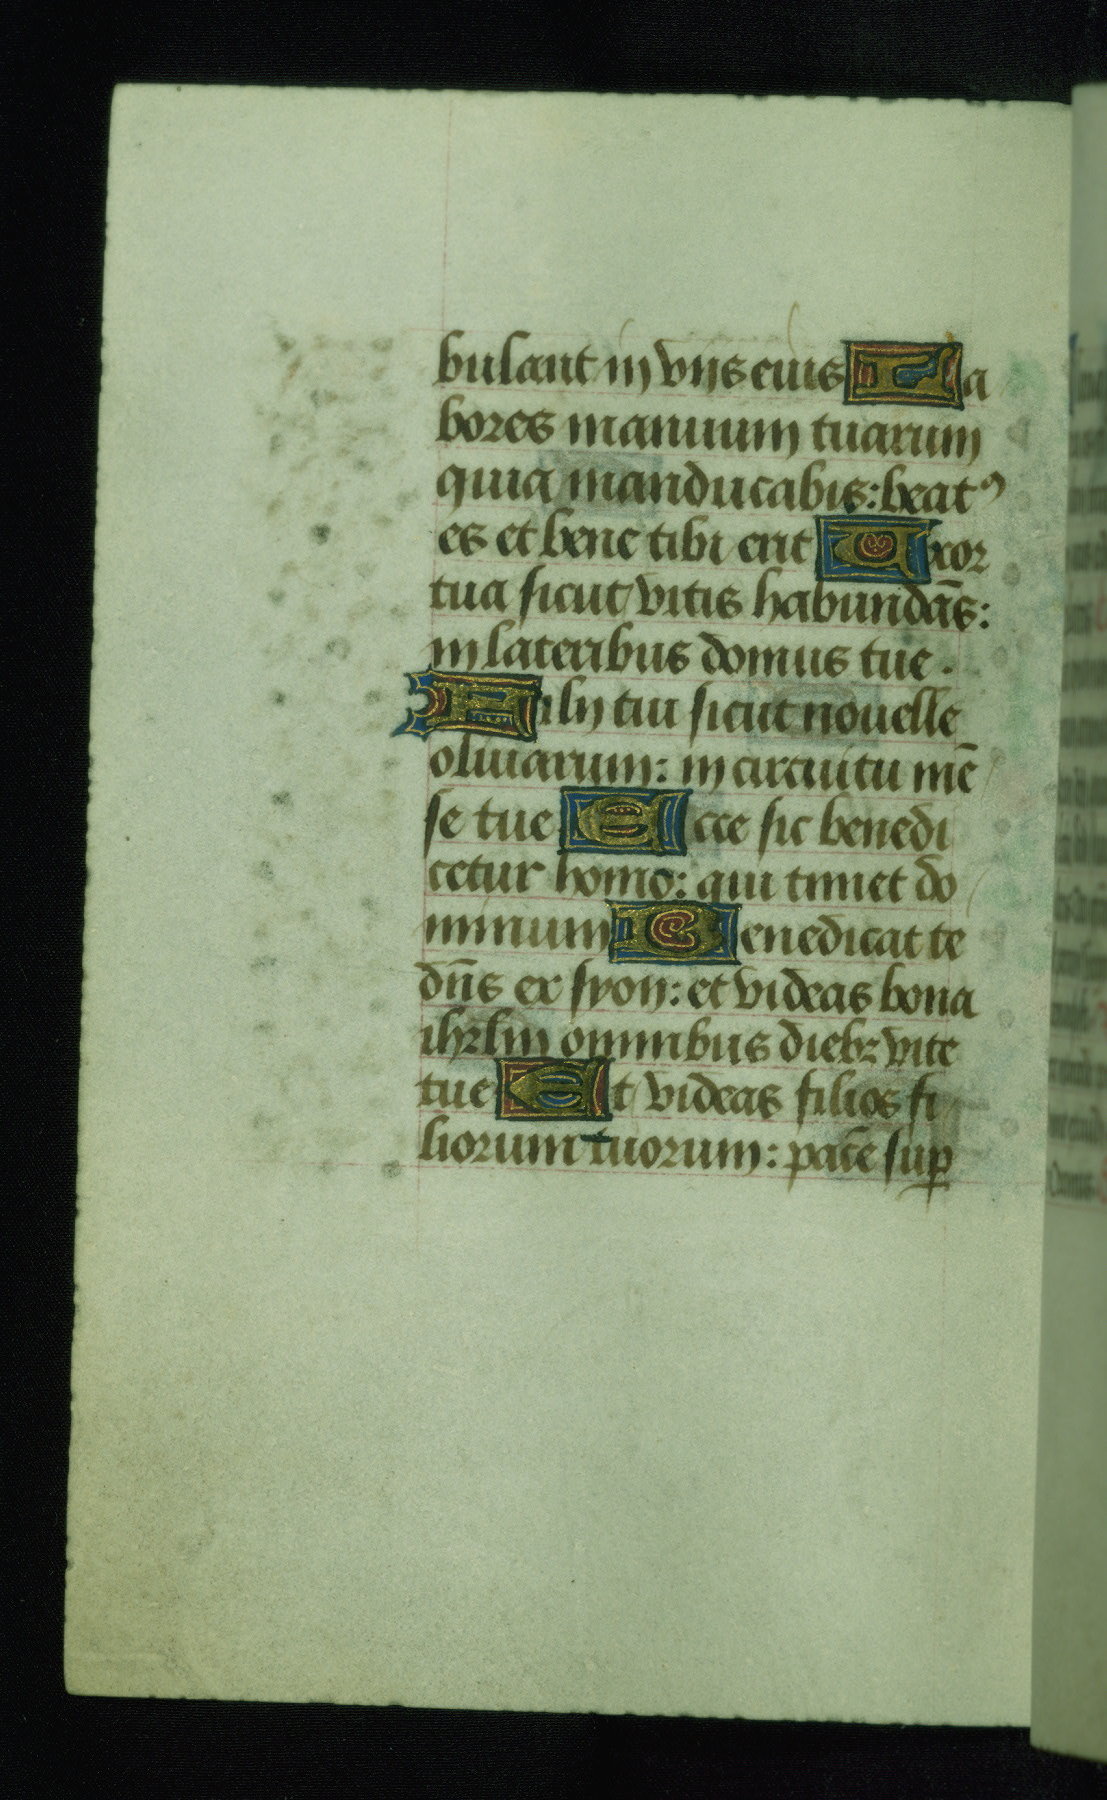 bulant in viis eius La
bores manuum tuarum
quia manducabis: beatꝰ
es et bene tibi erit Uxor
tua sicut vitis habundãs:
in lateribus domus tue.
Filii tui sicut nouelle
oliuarum: in circuitu mẽ
se tue Ecce sic benedi
cetur homo: qui timet do
minum Benedicat te
dñs ex syon: et videas bona
ihrlm omnibus diebꝫ vite
tue Et videas filios fi
liorum tuorum: pacẽ suꝑ